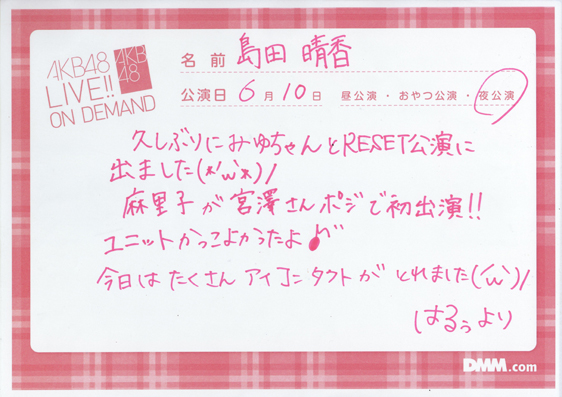 AKB48
LIVE!!
ON DEMAND
AKB
48
名前 島田 晴香
公演日 6月10日 昼公演・おやつ公演・夜公演
久しぶりにみゆちゃんとRESET公演に
出ました(*'ω'*)/
麻里子が宮澤さんポジで初出演!!
ユニットかっこよかったよ♪
今日はたくさんアイコンタクトがとれました('ω')/
はるぅより
DMM.com